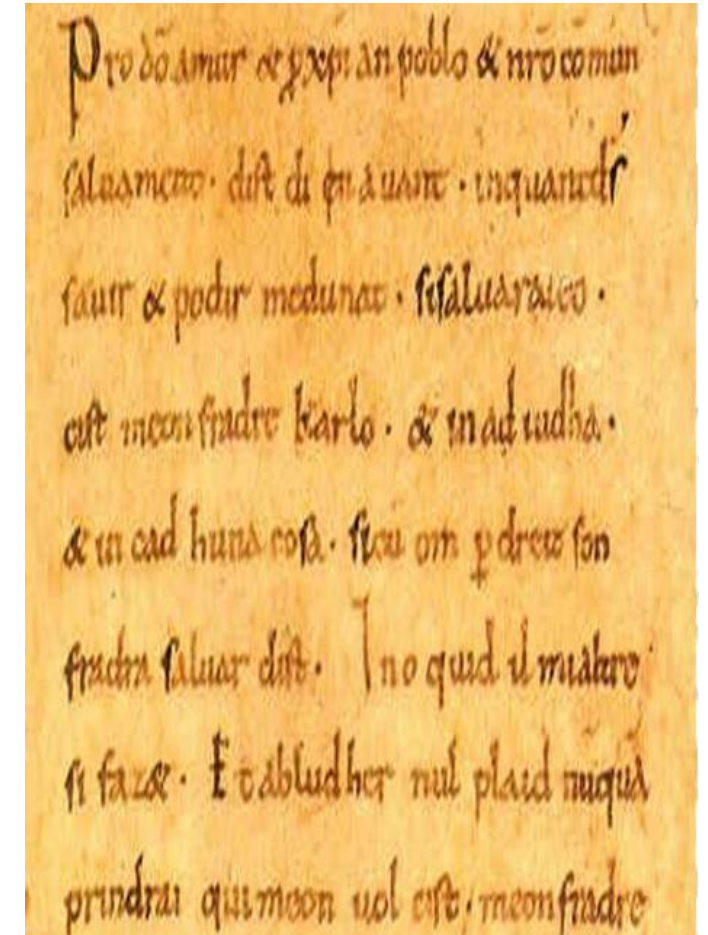 Pro dō amur & ꝑ xp̄ian poblo & nrō cōmun
saluament. dist di en auant. inquantdſ
sauir & podir medunat. sisaluaraieo.
cist meon fradre karlo. & in ad iudha.
& in cad huna cosa. sicū om ꝑ dreit son
fradra saluar dist. Ino quid il mialtre
si faz&. Et abludher nul plaid nūquā
prindrai qui meon uol cist. meonfradre